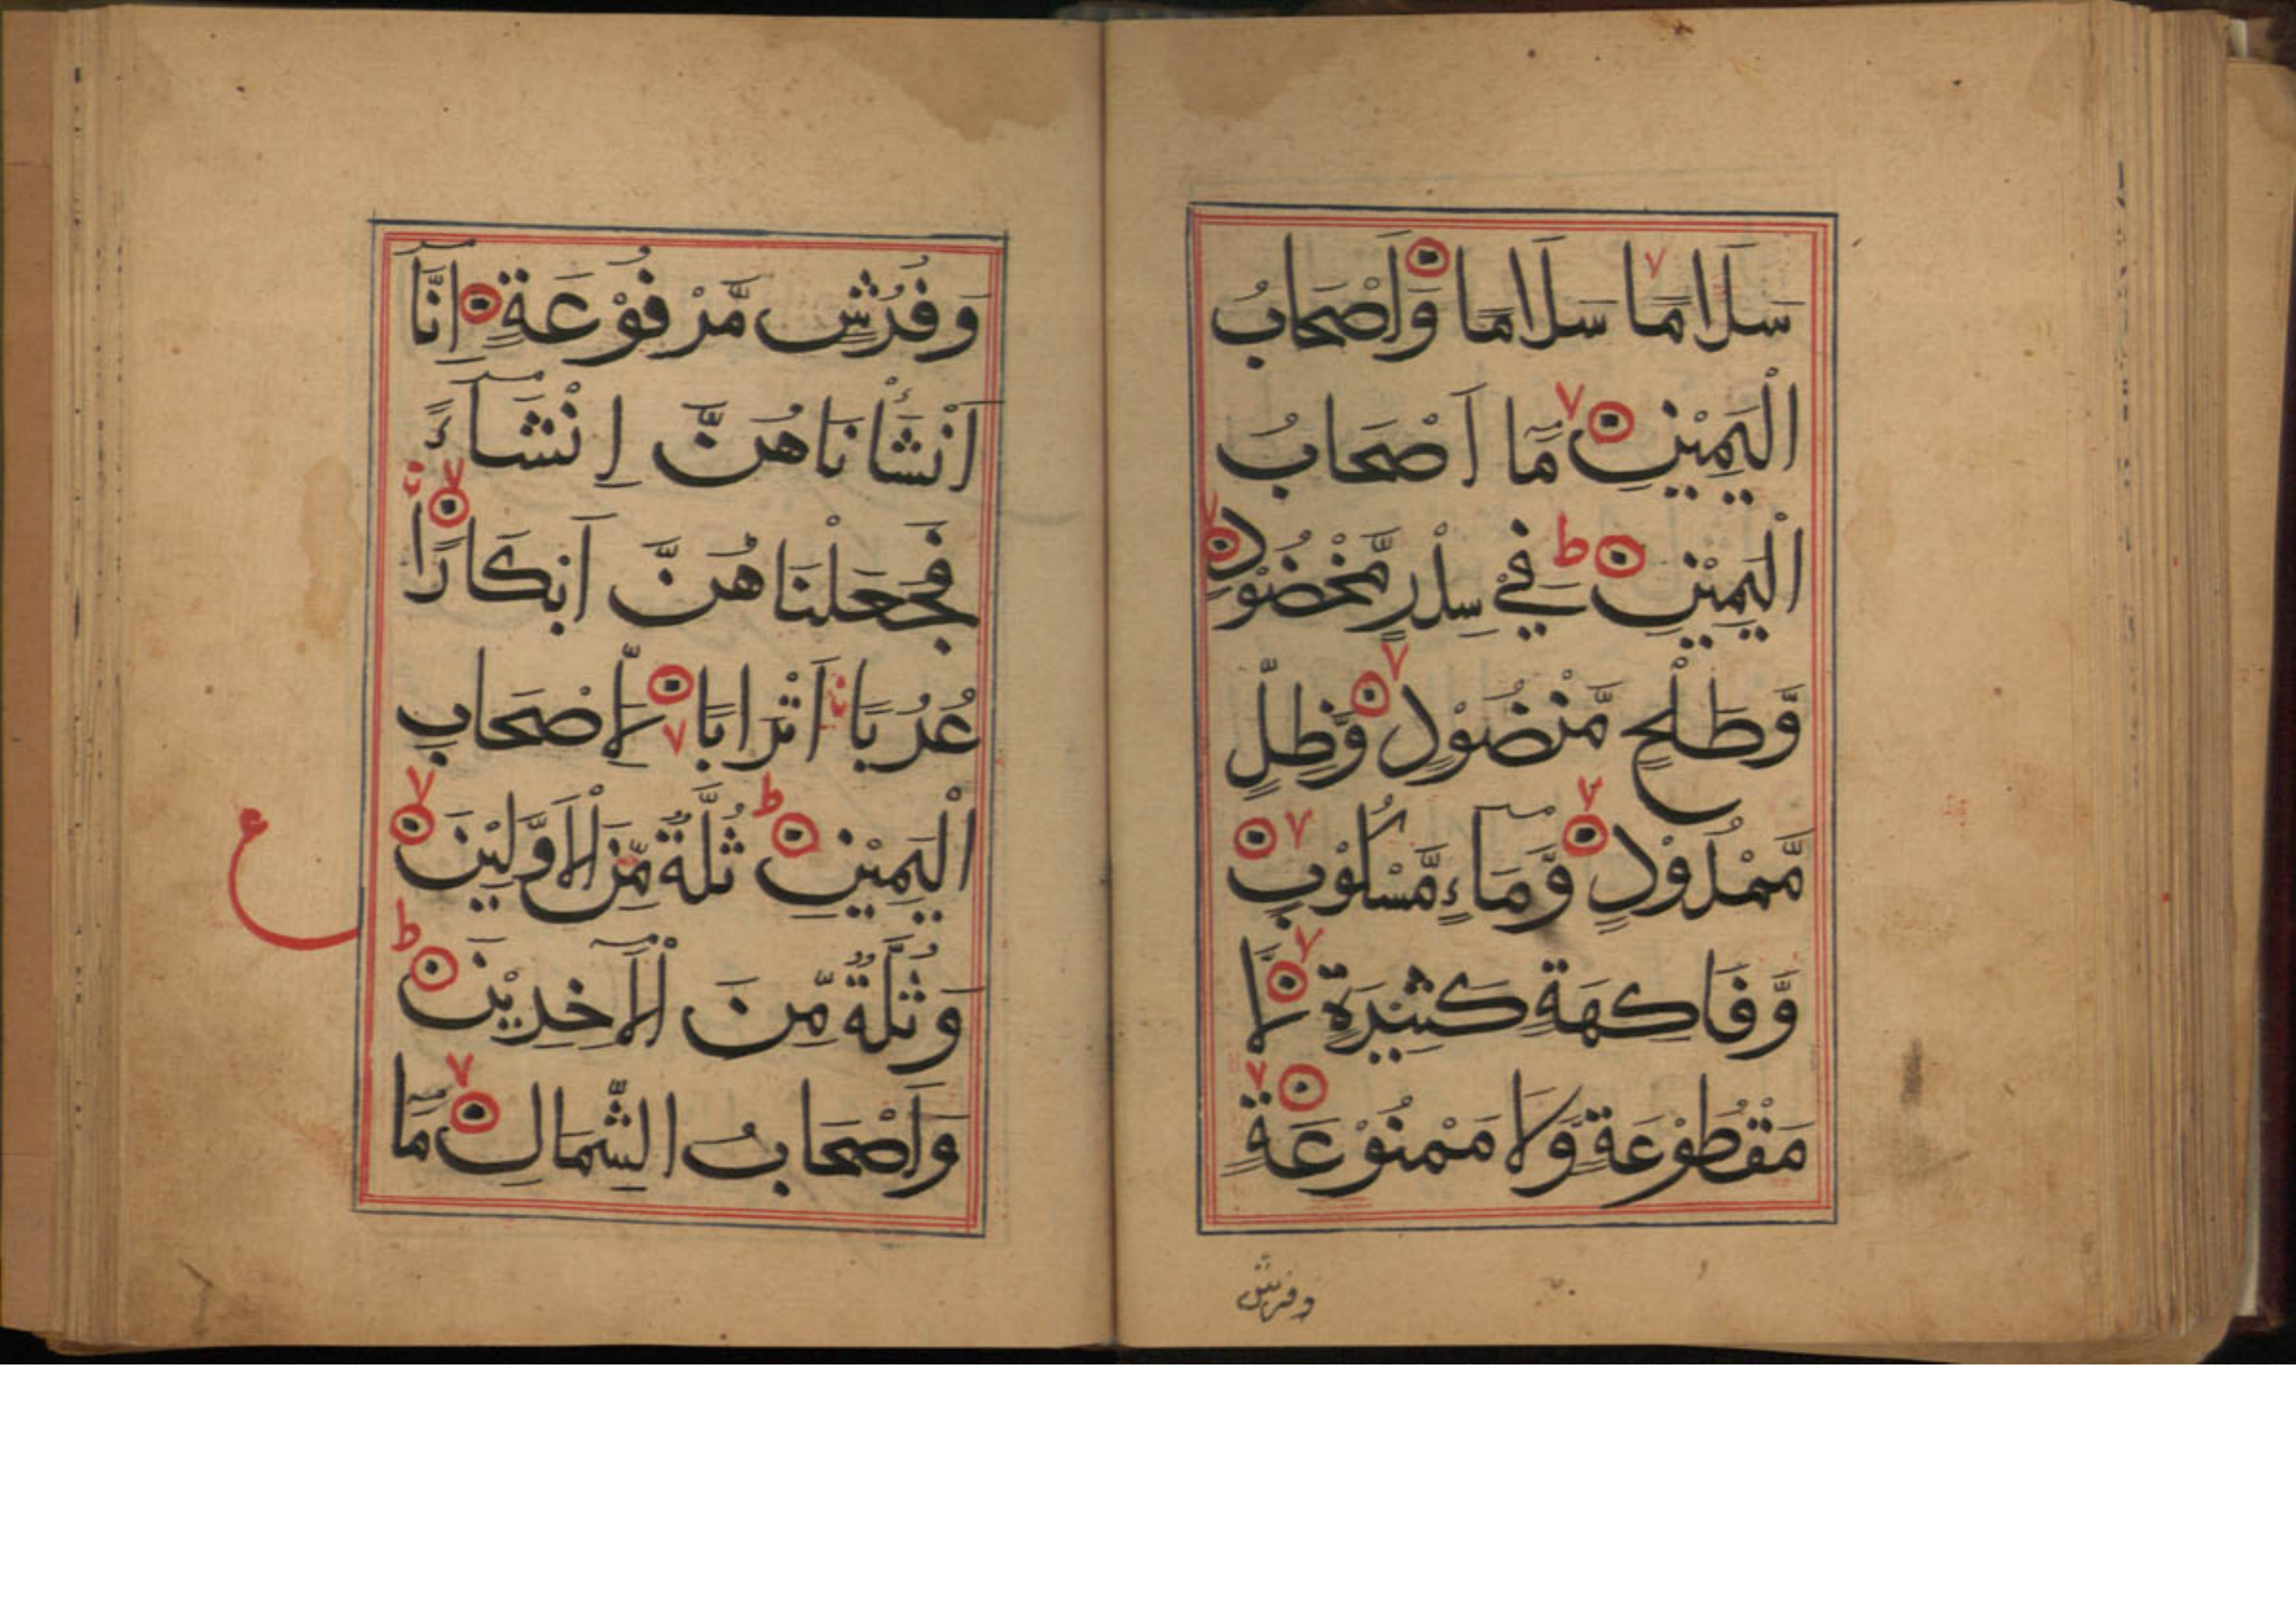 سَلَامًا سَلَامًا وَاَصْحَابُ
الْيَمِيْنِ مَٓا اَصْحَابُ
الْيَمِيْنِ ط فِيْ سِدْرٍ مَّخْضُوْدٍ
وَّطَلْحٍ مَّنْضُوْدٍ وَّظِلٍّ
مَّمْدُوْدٍ وَّمَآءٍ مَّسْكُوْبٍ
وَّفَاكِهَةٍ كَثِيْرَةٍ لَّا
مَقْطُوْعَةٍ وَّلَا مَمْنُوْعَةٍ
وفرش
وَفُرُشٍ مَّرْفُوْعَةٍ اِنَّآ
اَنْشَأْنَاهُنَّ اِنْشَآءً
فَجَعَلْنَاهُنَّ اَبْكَارًا
عُرُبًا اَتْرَابًا لِّاَصْحَابِ
الْيَمِيْنِ ط ثُلَّةٌ مِّنَ الْاَوَّلِيْنَ
وَثُلَّةٌ مِّنَ الْآخِرِيْنَ ط
وَاَصْحَابُ الشِّمَالِ مَٓا
ع